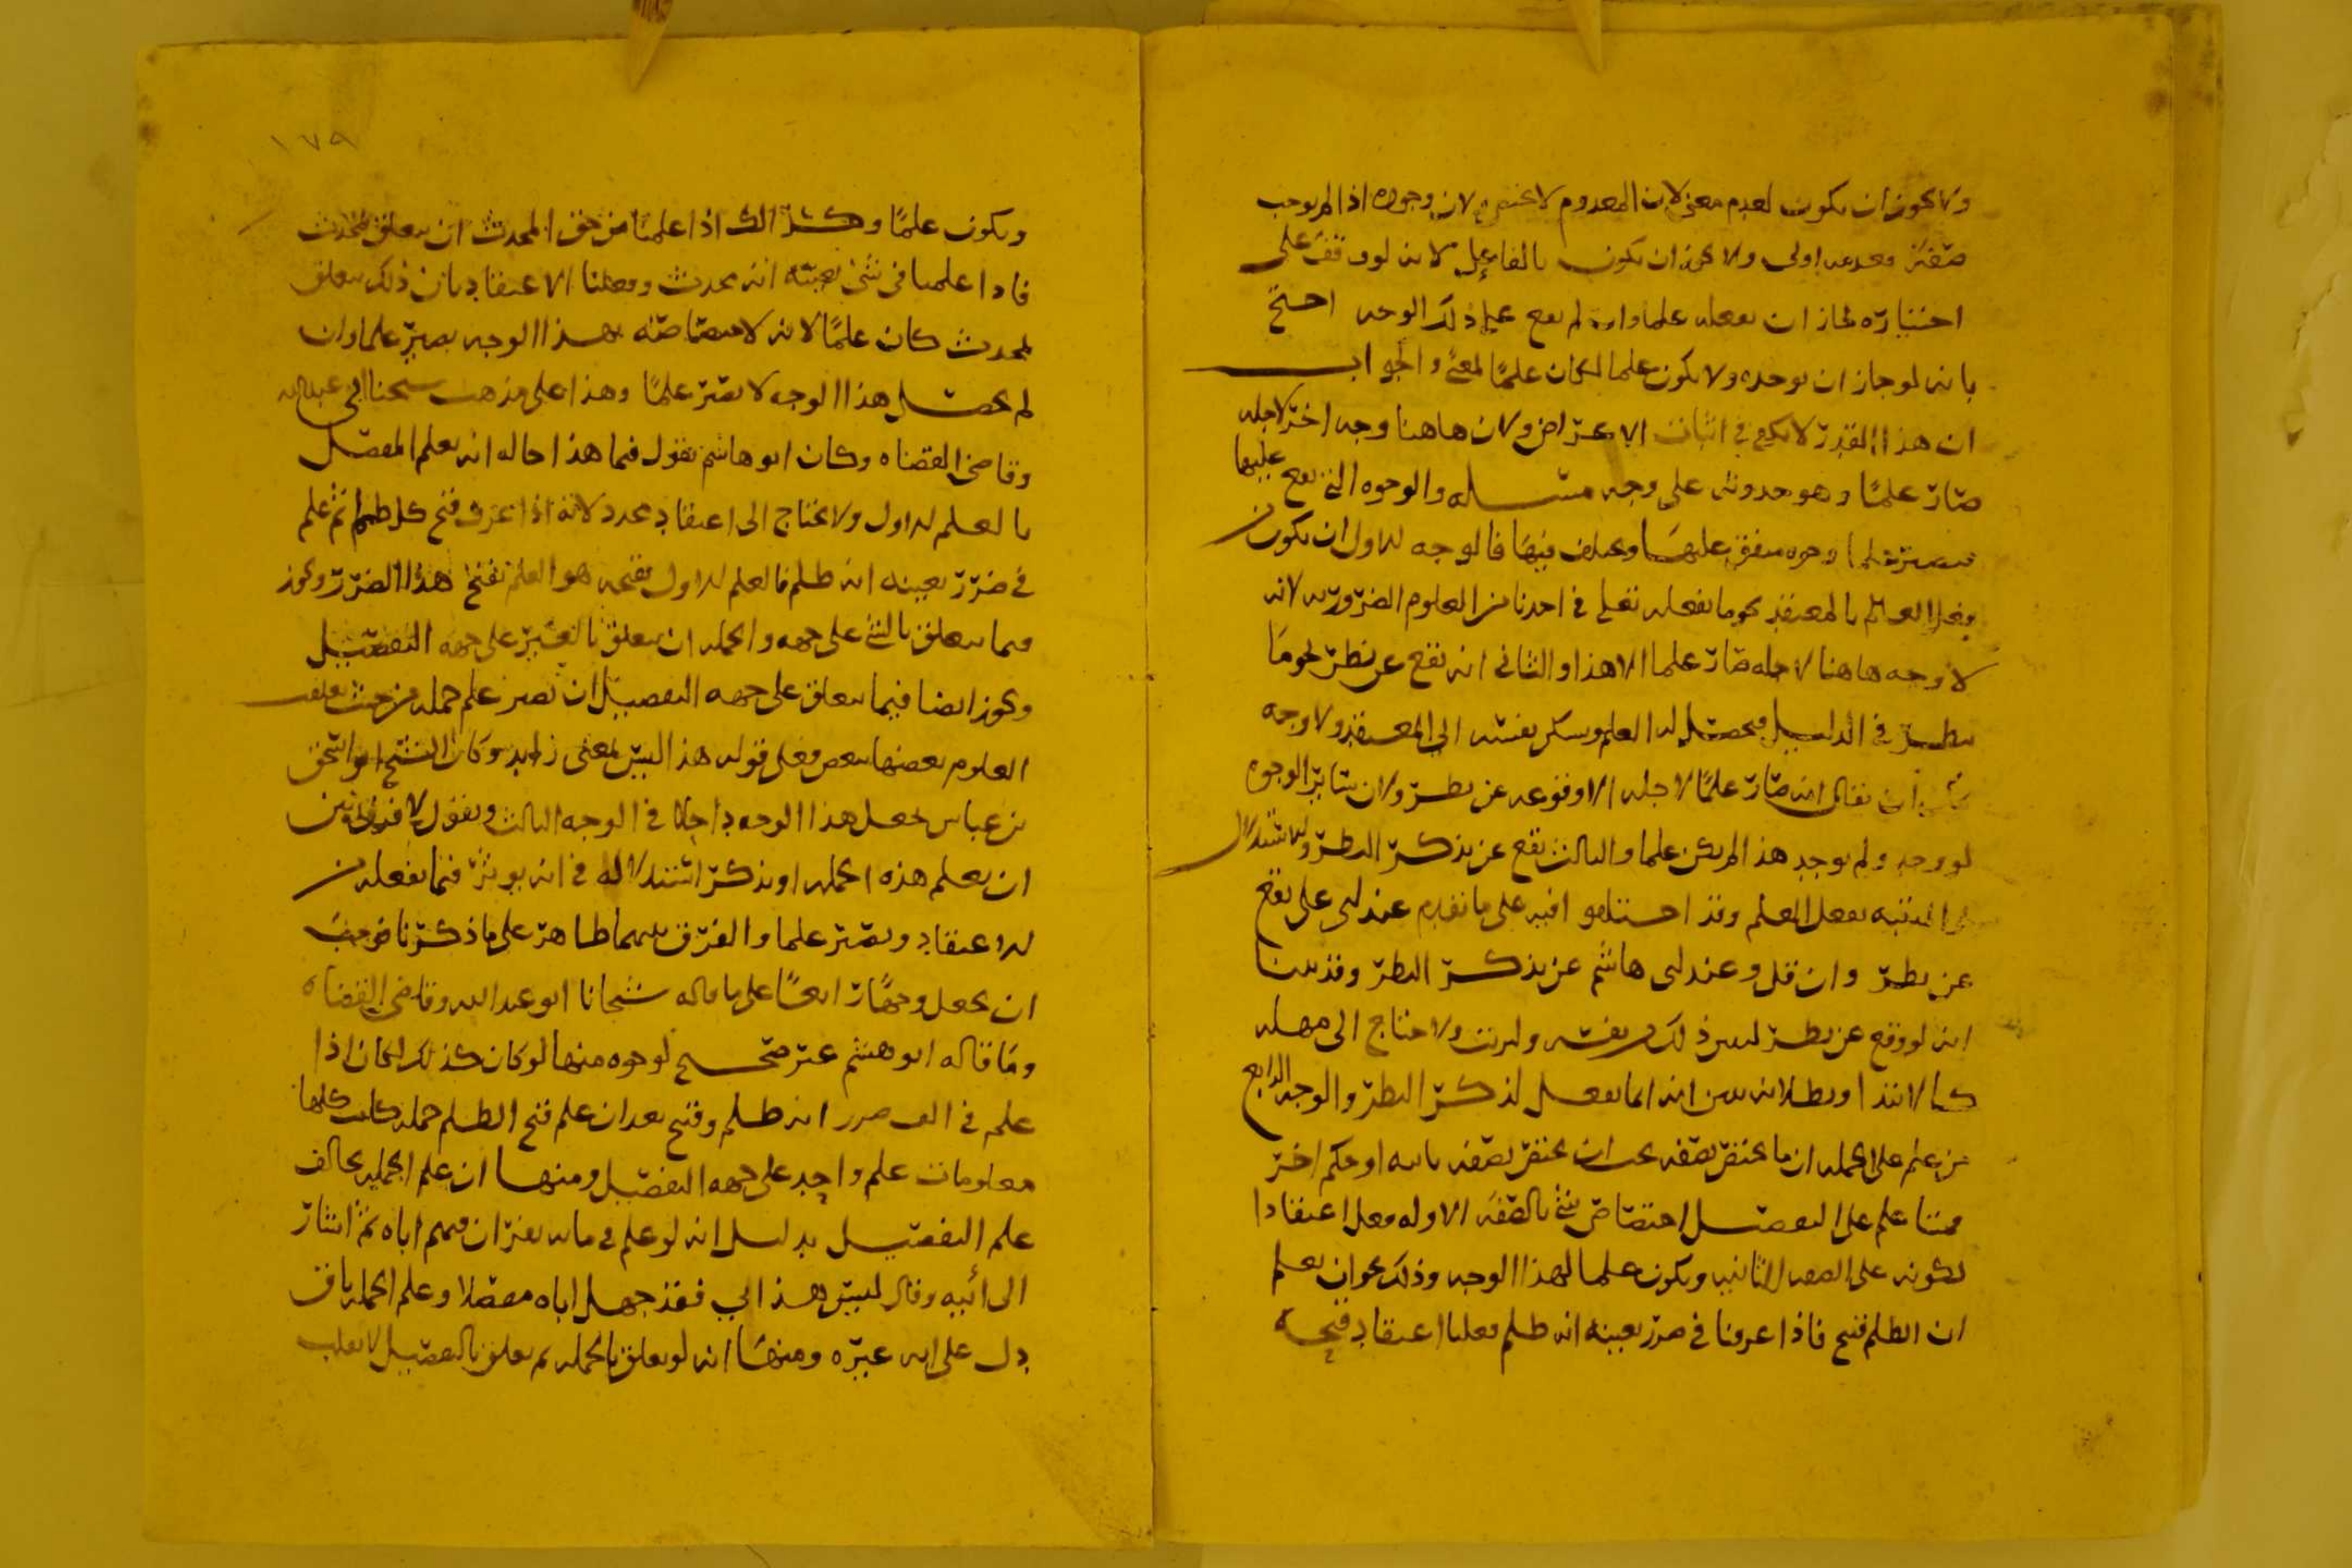 ولا يجوز ان يكون لعدم معنى لان المعدوم لا يختص ولان وجوده اذا لم يوجب
صفة فعدمه اولى ولا يجوز ان يكون بالفاعل لانه لو وقف على
اختياره لجاز ان يفعله علما وان لم يقع على ذلك الوجه احتج
بانه لو جاز ان يوجد ولا يكون علما لكان علمًا لمعنى والجواب
ان هذا القدر لا يكفي في اثبات الاعراض ولان هاهنا وجه اخر لاجله
صار علمًا وهو حدوثه على وجه مسله والوجوه التي يقع عليها
فيصير علما وجوه متفق عليها ومختلف فيها فالوجه الاول ان يكون من
فعل العالم بالمعتقد نحو ما يفعله تعالى في احدنا من العلوم الضرورية لانه
لا وجه هاهنا لاجله صار علما الا هذا والثاني ان يقع عن نظر نحو ما
ينظر في الدليل فيحصل له العلم وسكن نفسه الى المعتقد ولا وجه
يمكن ان يقال انه صار علمًا لاجله الا وقوعه عن نظر ولان سائر الوجوه
لو وجد ولم يوجد هذا لم يكن علما والثالث يقع عن تذكر النظر والاستدلال
المنتبه يفعل العلم وقد اختلفوا فيه على ما تقدم عند ابي علي يقع
عن نظر وان قل وعند ابي هاشم عن تذكر النظر وقد بينا
انه لو وقع عن نظر لبين ذلك من نفسه ولرتب ولاحتاج الى مهله
كالابتدا وبطلانه يبين انه انما يفعل لذكر النظر والوجه الرابع
من علم على الجمله ان ما يختص بصفه يجب ان يختص بصفه ثانيه او حكم اخر
فمتى علم على التفصيل اختصاص شي بالصفه الاوله فعل اعتقادا
لكونه على الصفه الثانيه ويكون علما لهذا الوجه وذلك نحو ان يعلم
ان الظلم قبيح فاذا عرفنا في ضرر بعينه انه ظلم فعلنا اعتقاد قبحه
١٧٩
ويكون علمًا وكذلك اذا علمنا من حق المحدث ان يتعلق بمحدث
فاذا علمنا في شي بعينه انه محدث وفعلنا الاعتقاد بان ذلك يتعلق
بمحدث كان علمًا لانه لاختصاصه بهذا الوجه يصير علما وان
لم يحصل هذا الوجه لا يصير علمًا وهذا على مذهب شيخنا ابي عبدالله
وقاضي القضاه وكان ابو هاشم يقول فيما هذا حاله انه يعلم المفصل
بالعلم الاول ولا يحتاج الى اعتقاد مجدد لانه اذا عرف قبح كل ظلم ثم علم
في ضرر بعينه انه ظلم فالعلم الاول بقبحه هو العلم بقبح هذا الضرر ويجوز
فيما يتعلق بالشي على جهه والجمله ان يتعلق بالغير على جهه التفصيل
ويجوز ايضا فيما يتعلق على جهه التفصيل ان يصير علم جمله من حيث تعلقت
العلوم بعضها ببعض فعلى قوله هذا ليس لمعنى زايد وكان الشيخ ابو اسحق
بن عياش يجعل هذا الوجه داخلا في الوجه الثالث ويقول لا فرق بين
ان يعلم هذه الجمله او يذكر استدلاله في انه يوثر فيما يفعله من
الاعتقاد ويصير علما والفرق بينهما ظاهر على ما ذكرنا فوجب
ان يجعل وجهًا رابعًا على ما قاله شيخانا ابو عبد الله وقاضي القضاه
وما قاله ابو هشم غير صحيح لوجوه منها لو كان كذلك لكان اذا
علم في الف ضرر انه ظلم وقبح بعد ان علم قبح الظلم جمله كانت كلها
معلومات علم واحد على جهه التفصيل ومنها ان علم الجمله يخالف
علم التفصيل بدليل انه لو علم في مايه نفر ان فيهم اباه ثم اشار
الى ابيه وقال ليس هذا ابي فقد جهل اباه مفصلا وعلم الجمله باق
دل على انه غيره ومنها انه لو تعلق بالجمله ثم تعلق بالتفصيل لانقلب